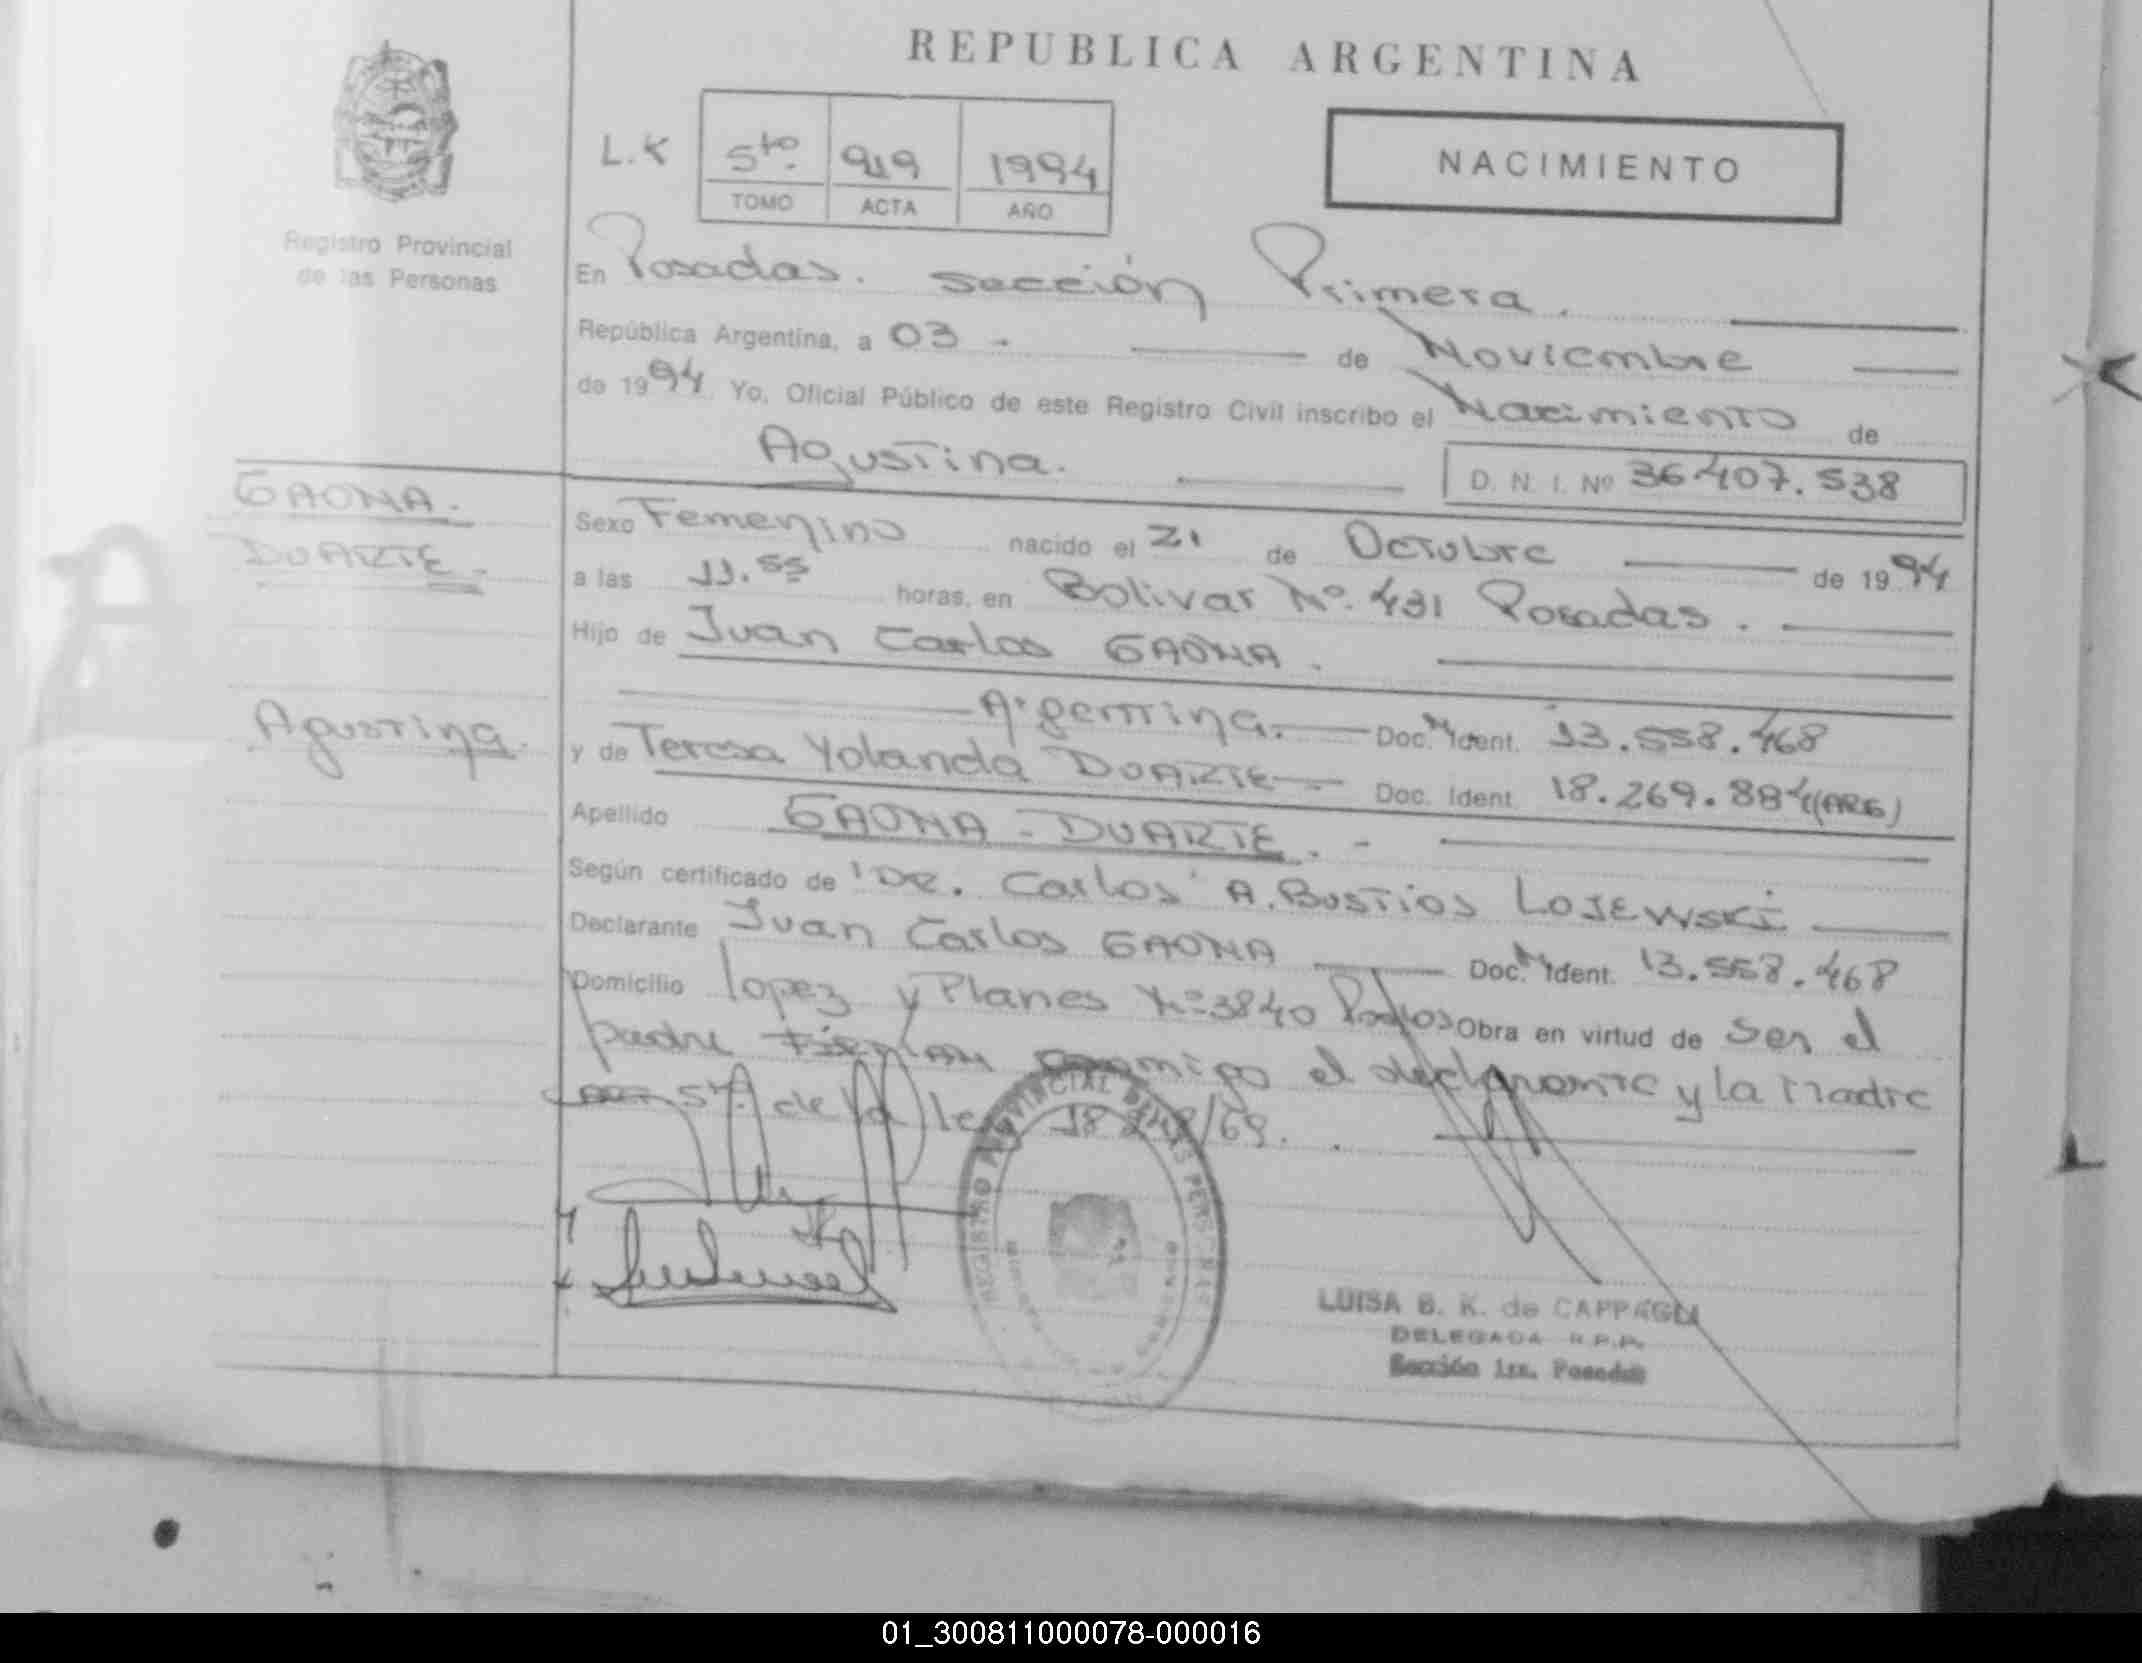 REPUBLICA ARGENTINA
L.K 5to. 919 1994
TOMO ACTA AÑO
NACIMIENTO
Registro Provincial
de las Personas
En Posadas. sección Primera.
República Argentina, a 03 - de Noviembre
de 1994. Yo, Oficial Público de este Registro Civil inscribo el Nacimiento de
Agustina.
D. N. I. Nº 36.407.538
GAONA.
DUARTE.
Agustina.
Sexo Femenino nacido el 21 de Octubre de 1994
a las 11.55 horas, en Bolivar Nº. 431 Posadas.
Hijo de Juan Carlos GAONA.
Argentina. Doc. M Ident. 13.558.468
y de Teresa Yolanda DUARTE Doc. Ident. 18.269.884 (ARG)
Apellido GAONA - DUARTE. -
Según certificado de "DR. Carlos" A. BUSTIOS LOJEWSKI
Declarante Juan Carlos GAONA Doc. M Ident. 13.558.468
Domicilio lopez y Planes Nº 3840 Obra en virtud de ser el
padre Firman conmigo el declarante y la Madre
de la ley 18.248/69.
REGISTRO PROVINCIAL DE LAS PERSONAS
LUISA B. K. de CAPPAGLI
DELEGADA R.P.P.
Sección 1ra. Posadas
01_300811000078-000016